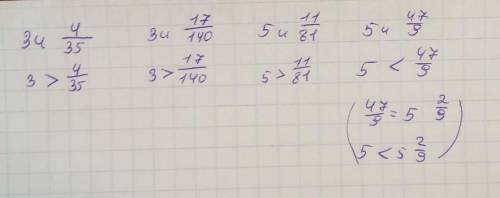 3 и 4/35   3 и 17/140   5 и 11/81   5 и 47/9
3 > 4/35   3 > 17/140   5 > 11/81   5 < 47/9
(47/9 = 5 2/9
5 < 5 2/9)